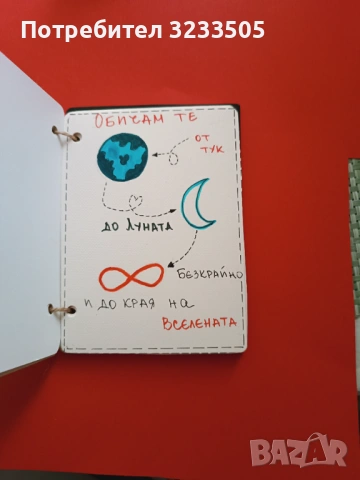 Потребител 3233505
ОБИЧАМ ТЕ
ОТ
ТУК
ДО ЛУНАТА
БЕЗКРАЙНО
И ДО КРАЯ НА
ВСЕЛЕНАТА
BAZAR